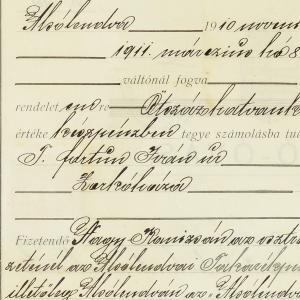 Alsólendva 1910 novem
1911. márczius hó 8
váltónál fogva
rendelet, en re Ötszázhatvank
értéke készpénzben tegye számolásba tud
T. Fartin Iván ur
Zorkóháza
Fizetendő Nagy Kanizsán az osztr
zeténél az Alsólendvai Takarékpn
illetőleg Alsólendván az Alsólend